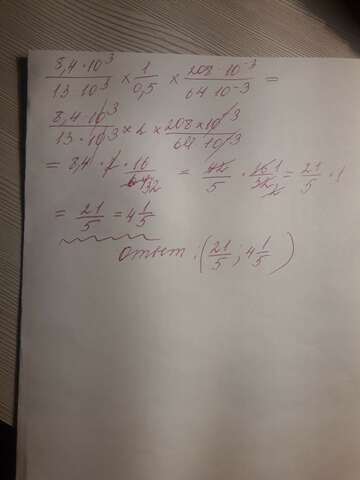 8,4·10³/13·10³ × 1/0,5 × 208·10⁻³/64·10⁻³ =
8,4·10³/13·10³ × 2 × 208×10⁻³/64·10⁻³
= 8,4 · 2 · 16/64 32 = 42/5 · 16 1/32 2 = 21/5 · 1
= 21/5 = 4 1/5
ответ: (21/5 ; 4 1/5)